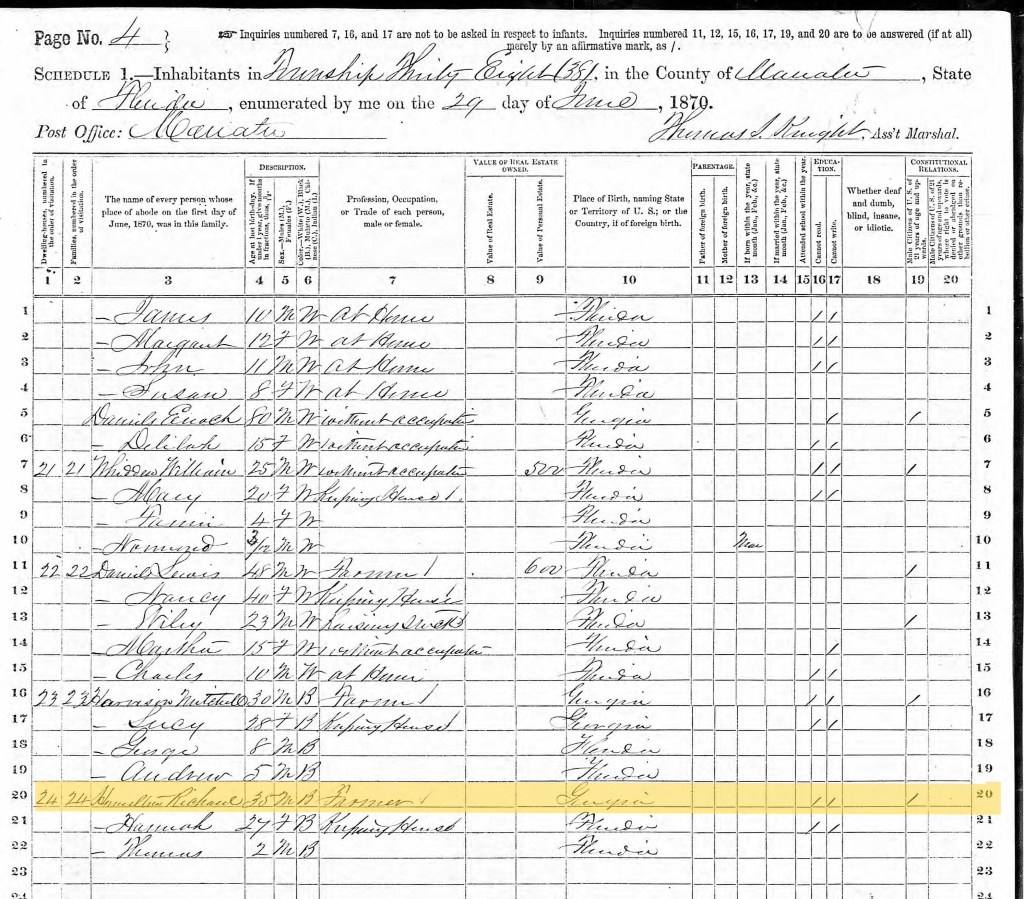 Page No. 4
☞ Inquiries numbered 7, 16, and 17 are not to be asked in respect to infants. Inquiries numbered 11, 12, 15, 16, 17, 19, and 20 are to be answered (if at all)
merely by an affirmative mark, as /.
SCHEDULE 1.—Inhabitants in Township Thirty Eight (38), in the County of Manatee, State
of Florida, enumerated by me on the 29 day of June, 1870.
Post Office: Manatee
Thomas S. Knight, Ass't Marshal.
DESCRIPTION. VALUE OF REAL ESTATE OWNED. PARENTAGE. EDUCATION. CONSTITUTIONAL RELATIONS.
Dwelling-houses, numbered in the order of visitation.
Families, numbered in the order of visitation.
The name of every person whose place of abode on the first day of June, 1870, was in this family.
Age at last birth-day. If under 1 year, give months in fractions, thus, 3/12
Sex.—Males (M.), Females (F.)
Color.—White (W.), Black (B.), Mulatto (M.), Chinese (C.), Indian (I.)
Profession, Occupation, or Trade of each person, male or female.
Value of Real Estate.
Value of Personal Estate.
Place of Birth, naming State or Territory of U. S.; or the Country, if of foreign birth.
Father of foreign birth.
Mother of foreign birth.
If born within the year, state month (Jan., Feb., &c.)
If married within the year, state month (Jan., Feb., &c.)
Attended school within the year.
Cannot read.
Cannot write.
Whether deaf and dumb, blind, insane, or idiotic.
Male Citizens of U. S. of 21 years of age and upwards.
Male Citizens of U. S. of 21 years of age and upwards, where right to vote is denied or abridged on other grounds than rebellion or other crime.
1 2 3 4 5 6 7 8 9 10 11 12 13 14 15 16 17 18 19 20
1 — James 10 M W At Home Florida / / 1
2 — Margaret 12 F W at Home Florida / / 2
3 — John 11 M W at Home Florida / / 3
4 — Susan 8 F W at Home Florida 4
5 Daniels Enoch 80 M W without occupation Georgia / / 5
6 — Delilah 15 F W without occupation Florida / / 6
7 21 21 Whidden William 25 M W without occupation 500 Florida / / / 7
8 — Mary 20 F W Keeping House / Florida / / 8
9 — 4 F W Florida 9
10 — 3/12 M W Florida Mar 10
11 22 22 Daniels Lewis 48 M W Farmer / 600 Florida / 11
12 — Nancy 40 F W Keeping House Florida 12
13 — Wiley 23 M W Raising Stock Florida / 13
14 — Martha 15 F W without occupation Florida / 14
15 — Charles 10 M W at Home Florida / / 15
16 23 23 Harrison Mitchell 30 M B Farmer / Georgia / / / 16
17 — Lucy 28 F B Keeping House / Georgia / / 17
18 — George 8 M B Florida 18
19 — Andrew 5 M B Florida 19
20 24 24 Richard 35 M B Farmer / Georgia / / / 20
21 — Hannah 27 F B Keeping House Florida / / 21
22 — Thomas 2 M B Florida 22
23 23
24